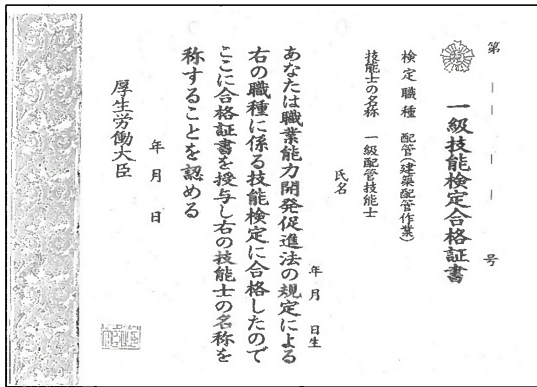 第 ー ー ー ー 号
一級技能検定合格証書
検定職種 配管(建築配管作業)
技能士の名称 一級配管技能士
氏名
年 月 日生
あなたは職業能力開発促進法の規定による
右の職種に係る技能検定に合格したので
ここに合格証書を授与し右の技能士の名称を
称することを認める
年 月 日
厚生労働大臣